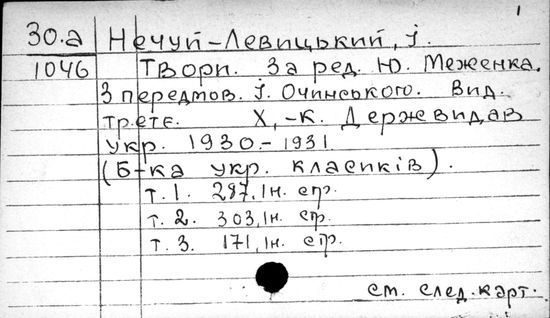 1
30.а Нечуй-Левицький, І.
1046 Твори. За ред. Ю. Меженка.
З передмов. І. Очинського. Вид.
третє. Х,-К. Держвидав
укр. 1930.-1931.
(Б-ка укр. класиків).
т. 1. 287, 1н. стр.
т. 2. 303, 1н. стр.
т. 3. 171, 1н. стр.
см. след. карт.